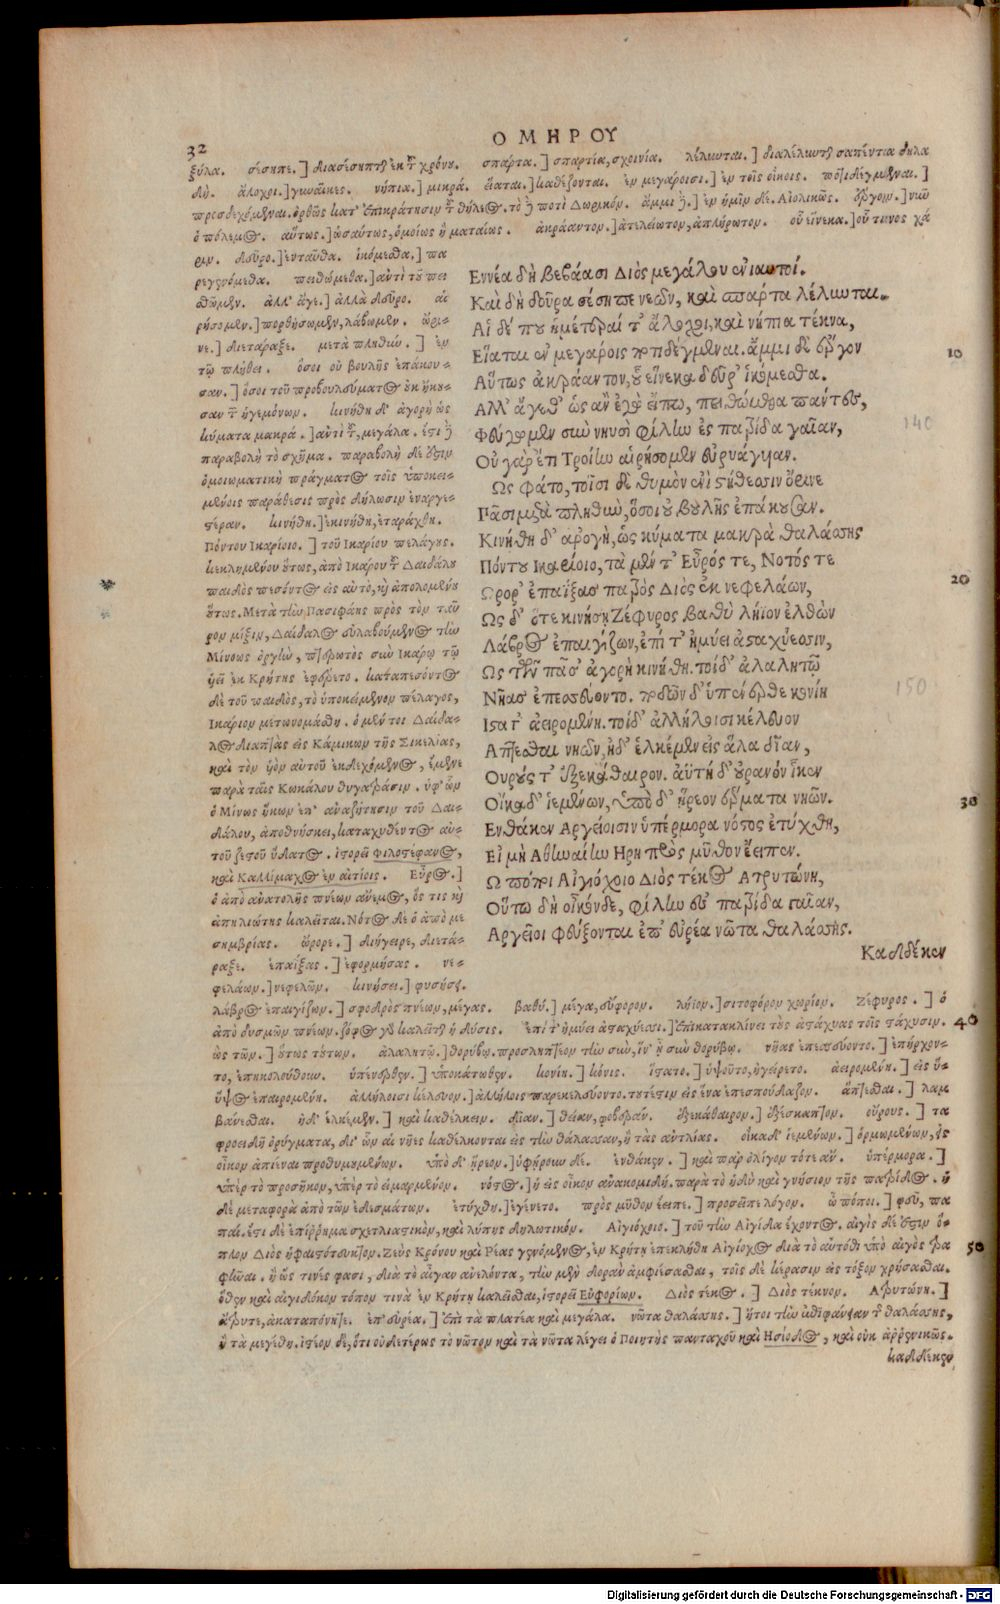 32
ΟΜΗΡΟΥ
ξύλα. σέσηπε.] διασέσηπται ἐκ τοῦ χρόνου. σπαρτα.] σπαρτία, σχοινία. λέλυνται.] διαλέλυνται σαπέντια δηλα
δή. ἄλοχοι.] γυναῖκες. νήπια.] μικρά. εἵαται.] καθέζονται. ἐν μεγάροισι.] ἐν τοῖς οἴκοις. ποτιδέγμεναι.]
προσδεχόμεναι. ὀρθῶς κατ' ἐπικράτησιν τοῦ θήλεος. τὸ δὲ ποτὶ Δωρικόν. ἄμμι δὲ.] ἐν ἡμῖν δέ. Αἰολικῶς. ἔργον.] νῦν
ὁ πόλεμος. αὔτως.] ὡσαύτως, ὁμοίως ἢ ματαίως. ἀκράαντον.] ἀτελείωτον, ἀπλήρωτον. οὗ εἵνεκα.] οὗ τινος χά
ριν. δεῦρο.] ἐνταῦθα. ἱκόμεσθα.] πα
ρεγενόμεθα. πειθώμεθα.] αὐτὶ τοῦ πει
σθῶμεν. ἀλλ' ἄγε.] ἀλλὰ δεῦρο. αἱ
ρήσομεν.] πορθήσωμεν, λάβωμεν. ὤρι-
νε.] διετάραξε. μετὰ πληθύν.] ἐν
τῷ πλήθει. ὅσοι οὐ βουλῆς ἐπάκου-
σαν.] ὅσοι τοῦ προβουλεύματος οὐκ ἤκου-
σαν τῶν ἡγεμόνων. κινήθη δ' ἀγορὴ ὡς
κύματα μακρά.] αὐτὶ τοῦ, μεγάλα. ἔστι δὲ
παραβολὴ τὸ σχῆμα. παραβολὴ δέ ἐστιν
ὁμοιωματικὴ πράγματος τοῖς ὑποκει-
μένοις παράθεσις πρὸς δήλωσιν ἐναργε-
στέραν. κινήθη.] ἐκινήθη, ἐταράχθη.
Πόντου Ικαρίοιο.] τοῦ Ικαρίου πελάγους.
κεκλημένου οὕτως, ἀπὸ Ικάρου τοῦ Δαιδάλου
παιδὸς πεσόντος εἰς αὐτὸ, καὶ ἀπολομένου
οὕτως. Μετὰ τὴν Πασιφάης πρὸς τὸν ταῦ
ρον μίξιν, Δαίδαλος εὐλαβούμενος τὴν
Μίνωος ὀργὴν, πτερωτὸς σὺν Ικάρῳ τῷ
υἱεῖ ἐκ Κρήτης ἐφέρετο. καταπεσόντος
δὲ τοῦ παιδὸς, τὸ ὑποκείμενον πέλαγος,
Ικάριον μετωνομάσθη. ὁ μέν τοι Δαίδα-
λος διαπτὰς εἰς Κάμικον τῆς Σικελίας,
καὶ τὸν υἱὸν αὐτοῦ ἐκδεχόμενος, ἔμεινε
παρὰ ταῖς Κωκάλου θυγατράσιν. ὑφ' ὧν
ὁ Μίνως ἥκων ἐπ' ἀναζήτησιν τοῦ Δαι-
δάλου, ἀποθνήσκει, καταχυθέντος αὐ-
τοῦ ζεστοῦ ὕδατος. ἱστορεῖ Φιλοστέφανος,
καὶ Καλλίμαχος ἐν αἰτίοις. Εὖρος.]
ὁ ἀπὸ ἀνατολῆς πνέων ἄνεμος, ὅς τις καὶ
ἀπηλιώτης καλεῖται. Νότος δὲ ὁ ἀπὸ με
σημβρίας. ὤρορε.] διήγειρε, διετά-
ραξε. ἐπαΐξας.] ἐφορμήσας. νε-
φελάων.] νεφελῶν. κινήσει.] φυσήσῃ.
Εννέα δὴ βεβάασι Διὸς μεγάλου ἐνιαυτοί.
Καὶ δὴ δοῦρα σέσηπε νεῶν, καὶ σπάρτα λέλυνται.
Αἱ δέ που ἡμέτεραί τ' ἄλοχοι, καὶ νήπια τέκνα,
Εἵαται ἐν μεγάροις ποτιδέγμεναι. ἄμμι δὲ ἔργον
10
Αὔτως ἀκράαντον, οὗ εἵνεκα δεῦρ' ἱκόμεσθα.
Αλλ' ἄγεθ' ὡς ἂν ἐγὼ εἴπω, πειθώμεθα πάντες,
140
Φεύγωμεν σὺν νηυσὶ φίλην ἐς πατρίδα γαῖαν,
Οὐ γὰρ ἔτι Τροίην αἱρήσομεν εὐρυάγυιαν.
Ως φάτο, τοῖσι δὲ θυμὸν ἐνὶ στήθεσσιν ὄρινε
Πᾶσι μετὰ πληθὺν, ὅσοι οὐ βουλῆς ἐπάκουσαν.
Κινήθη δ' ἀγορὴ, ὡς κύματα μακρὰ θαλάσσης
Πόντου Ικαρίοιο, τὰ μέν τ' Εὖρός τε, Νοτός τε
20
Ωρορ' ἐπαΐξας πατρὸς Διὸς ἐκ νεφελάων,
Ως δ' ὅτε κινήσῃ Ζέφυρος βαθὺ λήϊον ἐλθὼν
Λάβρος ἐπαιγίζων, ἐπί τ' ἠμύει ἀσταχύεσσιν,
Ως τῶν πᾶσ' ἀγορὴ κινήθη. τοὶ δ' ἀλαλητῷ
Νῆας ἐπεσσεύοντο. ποδῶν δ' ὑπένερθε κονίη
150
Ιστατ' ἀειρομένη. τοὶ δ' ἀλλήλοισι κέλευον
Απτεσθαι νηῶν, ἠδ' ἑλκέμεν εἰς ἅλα δῖαν,
Ουρούς τ' ἐξεκάθαιρον. ἀϋτὴ δ' οὐρανὸν ἷκεν
Οἴκαδ' ἱεμένων, ὑπὸ δ' ᾕρεον ἕρματα νηῶν.
30
Ενθά κεν Αργείοισιν ὑπέρμορα νόστος ἐτύχθη,
Εἰ μὴ Αθηναίην Ηρη πρὸς μῦθον ἔειπεν.
Ω πόποι Αἰγιόχοιο Διὸς τέκος Ατρυτώνη,
Οὕτω δὴ οἶκόνδε, φίλην ἐς πατρίδα γαῖαν,
Αργεῖοι φεύξονται ἐπ' εὐρέα νῶτα θαλάσσης.
Καδδέκεν
λάβρος ἐπαιγίζων.] σφοδρὸς πνέων, μέγας. βαθύ.] μέγα, εὔφορον. λήϊον.] σιτοφόρον χωρίον. Ζέφυρος.] ὁ
ἀπὸ δυσμῶν πνέων. ζόφος γὰρ καλεῖται ἡ δύσις. ἐπί τ' ἠμύει ἀσταχύεσσι.] ἐπικατακλίνει τοὺς ἀστάχυας τοῖς στάχυσιν. 40
ὣς τῶν.] οὕτως τούτων. ἀλαλητῷ.] θορύβῳ. προσληπτέον τὴν σὺν, ἵν' ᾖ σὺν θορύβῳ. νῆας ἐπεσσεύοντο.] ἐπήρχον-
το, ἐπηκολούθουν. ὑπένερθεν.] ὑποκάτωθεν. κονίη.] κόνις. ἵστατο.] ὑψοῦτο, ἠγείρετο. ἀειρομένη.] εἰς ὕ-
ψος ἐπαιρομένη. ἀλλήλοισι κέλευον.] ἀλλήλοις παρεκελεύοντο. τουτέστιν εἰς ἕνα ἐπεσπούδαζον. ἅπτεσθαι.] λαμ
βάνεσθαι. ἠδ' ἑλκέμεν.] καὶ καθέλκειν. δῖαν.] θείαν, φοβεράν. ἐξεκάθαιρον.] ἐξέσκαπτον. οὔρους.] τα
φροειδῆ ὀρύγματα, δι' ὧν αἱ νῆες καθέλκονται εἰς τὴν θάλασσαν, ἢ τὰς ἀντλίας. οἴκαδ' ἱεμένων.] ὁρμωμένων, εἰς
οἶκον ἀπιέναι προθυμουμένων. ὑπὸ δ' ᾕρεον.] ὑφῄρουν δέ. ἔνθά κεν.] καὶ παρ ὀλίγον τότε ἄν. ὑπέρμορα.]
ὑπὲρ τὸ προσῆκον, ὑπὲρ τὸ εἱμαρμένον. νόστος.] ἡ εἰς οἶκον ἀνακομιδή. παρὰ τὸ ἡδὺ καὶ γνήσιον τῆς πατρίδος. ἡ
δὲ μεταφορὰ ἀπὸ τῶν ἐδεσμάτων. ἐτύχθη.] ἐγένετο. πρὸς μῦθον ἔειπε.] προσεῖπε λόγον. ὢ πόποι.] φεῦ, πα
παί. ἔστι δὲ ἐπίῤῥημα σχετλιαστικὸν, καὶ λύπης δηλωτικόν. Αἰγιόχοιο.] τοῦ τὴν Αἰγίδα ἔχοντος. αἰγὶς δέ ἐστιν ὅ-
πλον Διὸς ἡφαιστότευκτον. Ζεὺς Κρόνου καὶ Ρέας γενόμενος, ἐν Κρήτῃ ἐπεκλήθη Αἰγίοχος διὰ τὸ αὐτόθι ὑπὸ αἰγὸς τρα 50
φῆναι. ἢ ὥς τινές φασι, διὰ τὸ αἶγαν ἀνελόντα, τὴν μὲν δορὰν ἀμφιέσασθαι, τοῖς δὲ κέρασιν εἰς τόξον χρήσασθαι.
ὅθεν καὶ αἰγίδοκον τόπον τινὰ ἐν Κρήτῃ καλεῖσθαι, ἱστορεῖ Εὐφορίων. Διὸς τέκος.] Διὸς τέκνον. Ατρυτώνη.]
ἄτρυτε, ἀκαταπόνητε. ἐπ' εὐρέα.] ἐπὶ τὰ πλατέα καὶ μεγάλα. νῶτα θαλάσσης.] ἤτοι τὴν ἐπιφάνειαν τῆς θαλάσσης,
ἢ τὰ μεγέθη. ἰστέον δὲ, ὅτι οὐδετέρως τὸ νῶτον καὶ τὰ νῶτα λέγει ὁ Ποιητὴς πανταχοῦ καὶ Ησίοδος, καὶ οὐκ ἀρσενικῶς.
καδδέκεν
Digitalisierung gefördert durch die Deutsche Forschungsgemeinschaft - DFG